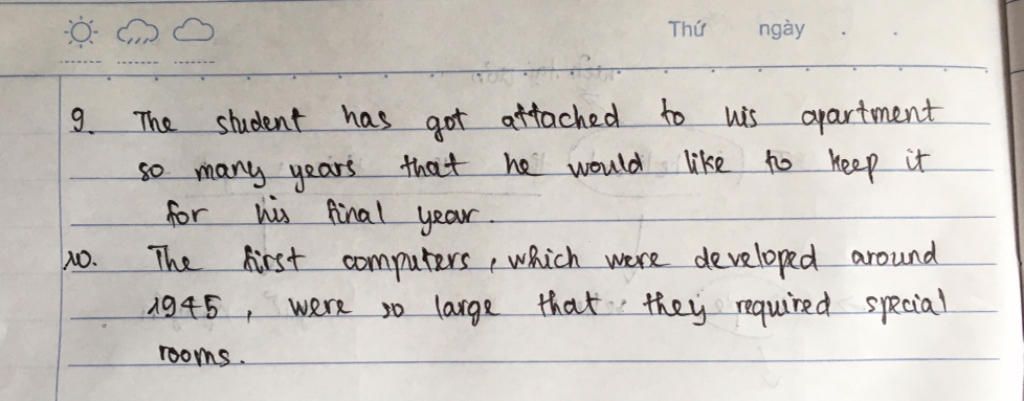 Thứ ngày . .
9. The student has got attached to his apartment
so many years that he would like to keep it
for his final year.
10. The first computers, which were developed around
1945, were so large that they required special
rooms.